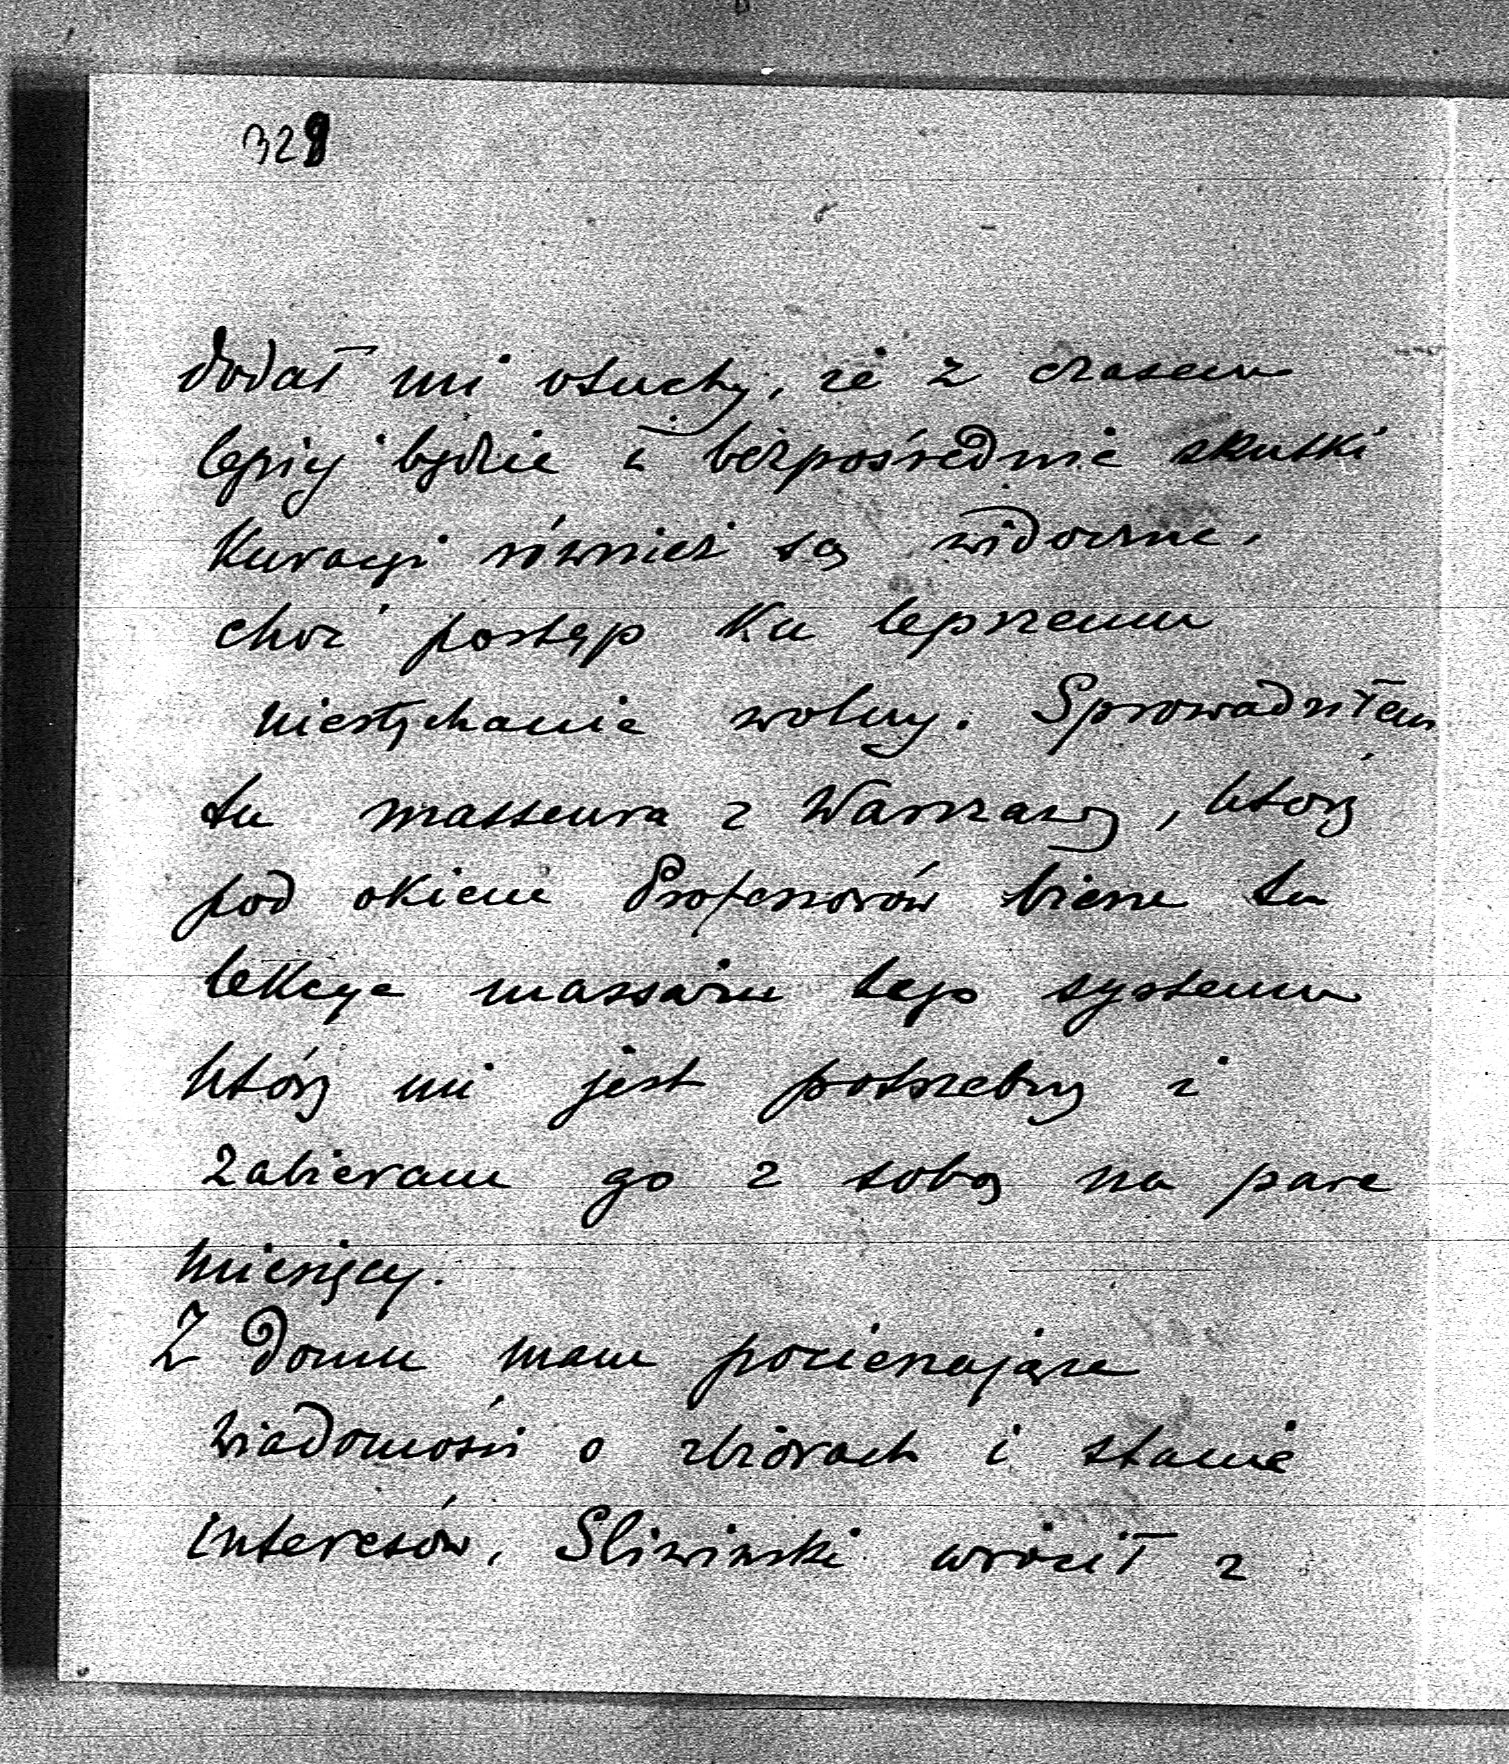 328
dodał mi otuchy, że z czasem
lepiej będzie i bezpośrednie skutki
kuracyi również są widoczne,
choć postęp ku lepszemu
niesłychanie wolny. Sprowadziłem
tu masseura z Warszawy, który
pod okiem Profesorów bierze tu
lekcye massażu tego systemu
który mi jest potrzebny i
zabieram go z sobą na parę
miesięcy.
Z domu mam pocieszające
wiadomości o zbiorach i stanie
interesów. Sliwinski wrócił z